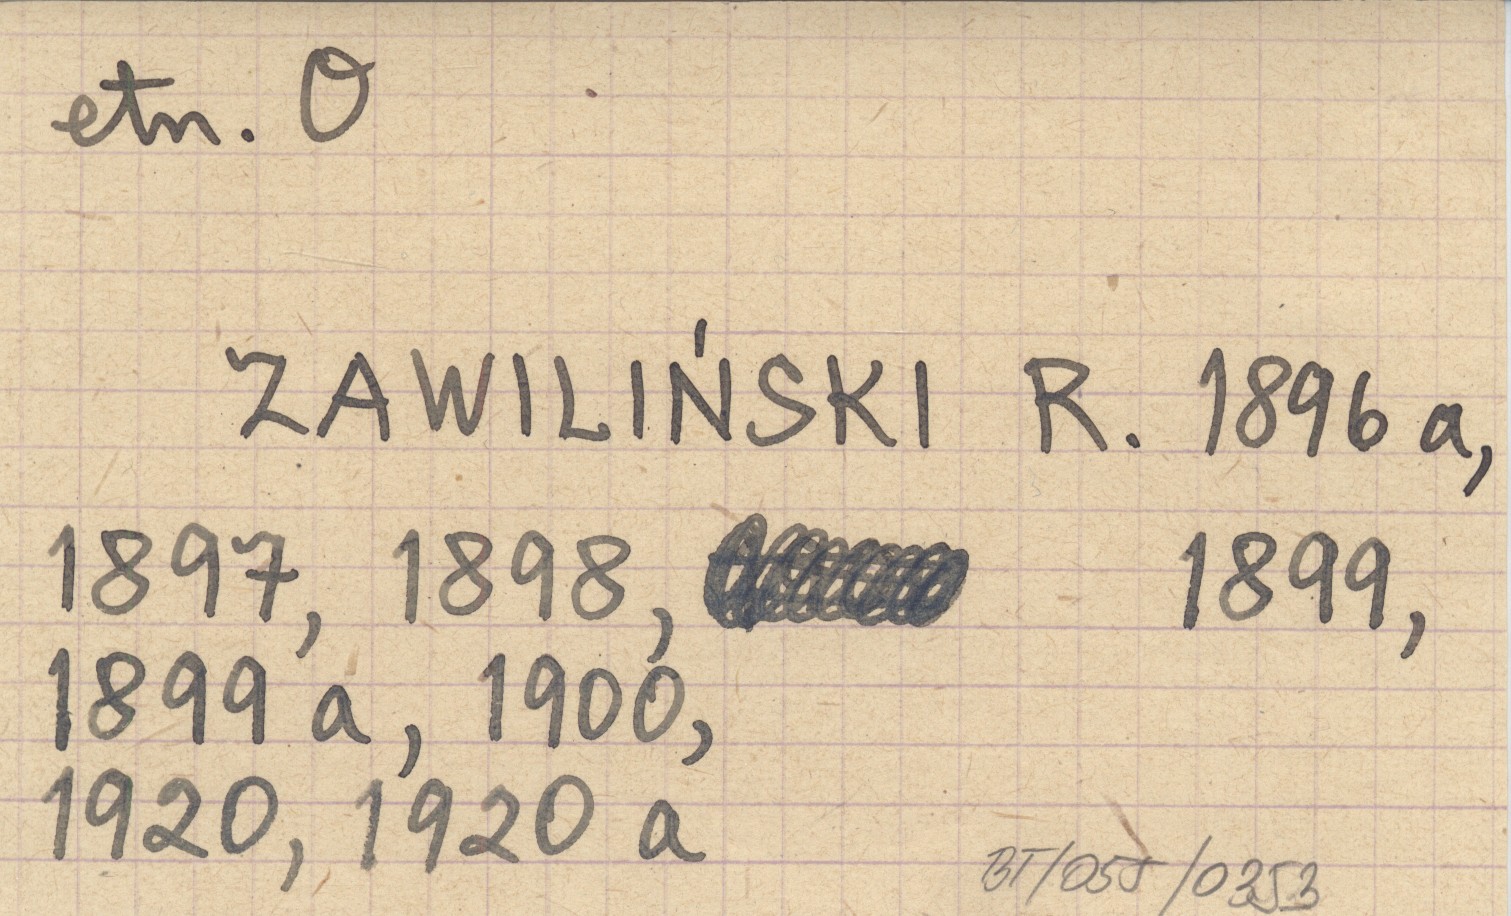 etn. O
ZAWILIŃSKI R. 1896 a,
1897, 1898, 1899,
1899 a, 1900,
1920, 1920 a
BT/055/0353